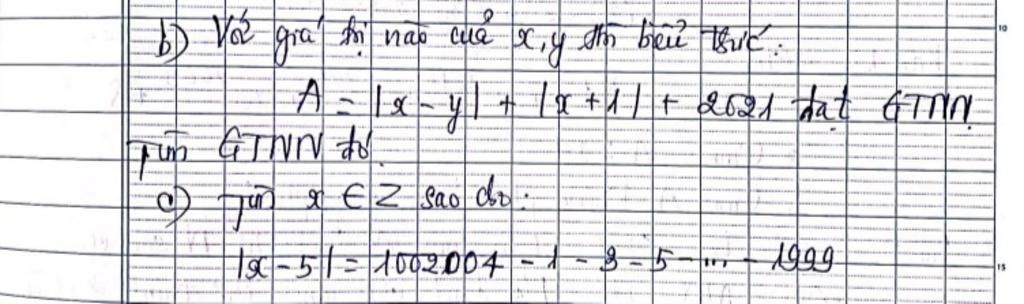 b) Với giá trị nào của x, y thì biểu thức:
A = |x - y| + |x + 1| + 2021 đạt GTNN.
Tìm GTNN đó.
c) Tìm x ∈ Z sao cho:
|x - 5| = 1002004 - 1 - 3 - 5 - ... - 1999
10
15